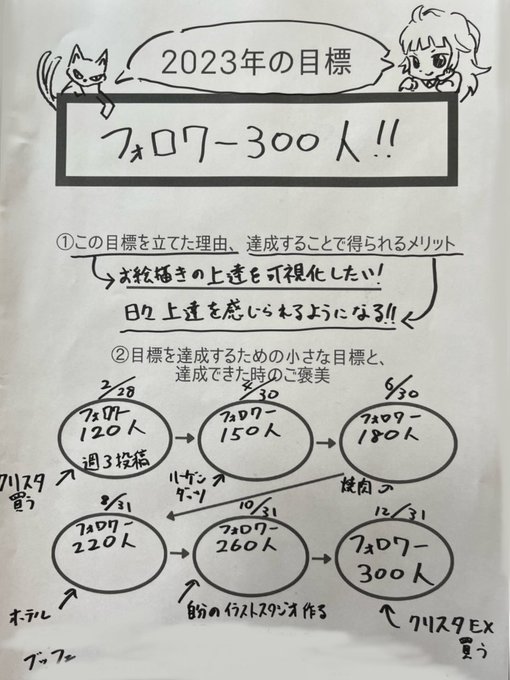 2023年の目標
フォロワー300人!!
①この目標を立てた理由、達成することで得られるメリット
お絵描きの上達を可視化したい!
日々上達を感じられるようになる!!
②目標を達成するための小さな目標と、
達成できた時のご褒美
2/28
フォロワー
120人
週3投稿
クリスタ
買う
4/30
フォロワー
150人
ハーゲン
ダッツ
6/30
フォロワー
180人
焼肉
8/31
フォロワー
220人
ホテル
ブッフェ
10/31
フォロワー
260人
自分のイラストスタジオ作る
12/31
フォロワー
300人
クリスタEX
買う